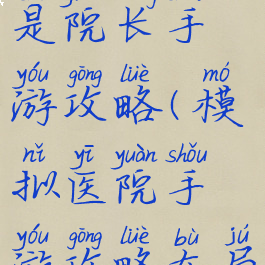 是院长手
yóu gōng lüè mó
游攻略(模
nǐ yī yuàn shǒu
拟医院手
yóu gōng lüè bù jú
游攻略布局